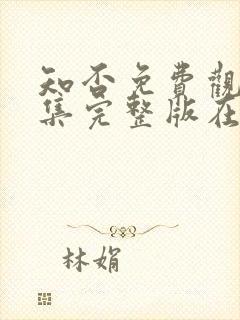 知否免費觀
集完整版在
林娟